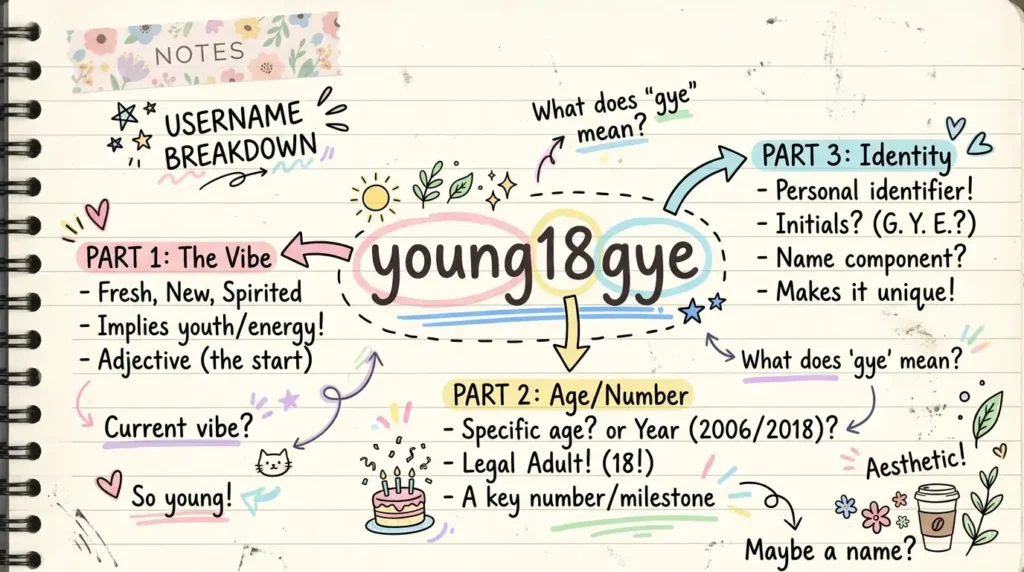 NOTES
USERNAME
BREAKDOWN
What does "gye"
mean?
young18gye
PART 1: The Vibe
- Fresh, New, Spirited
- Implies youth/energy!
- Adjective (the start)
Current vibe?
So young!
PART 2: Age/Number
- Specific age? or Year (2006/2018)?
- Legal Adult! (18!)
- A key number/milestone
PART 3: Identity
- Personal identifier!
- Initials? (G. Y. E.?)
- Name component?
- Makes it unique!
What does 'gye' mean?
Aesthetic!
Maybe a name?